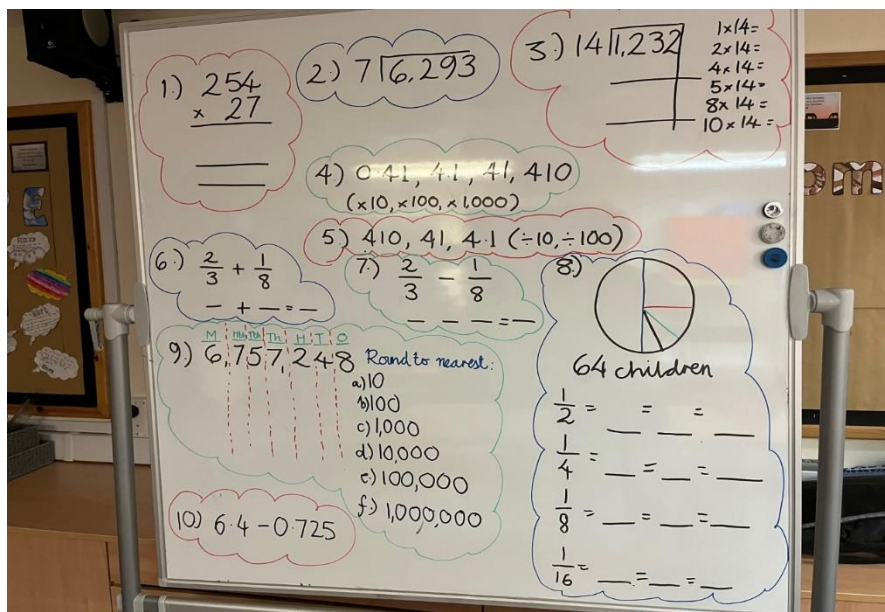 1.) 254
× 27
2.) 7 6,293
3.) 14 1,232
1×14=
2×14=
4×14=
5×14=
8×14=
10×14=
4) 0·41, 4·1, 41, 410
(×10, ×100, ×1,000)
5.) 410, 41, 4·1 (÷10, ÷100)
6.) 2/3 + 1/8
_ + _ = _
7.) 2/3 - 1/8
_ _ _ = _
8.)
64 children
1/2 = _ = _ = _
1/4 = _ = _ = _
1/8 = _ = _ = _
1/16 = _ = _ = _
M Hth Tth Th H T O
9.) 6,757,248
Round to nearest:
a) 10
b) 100
c) 1,000
d) 10,000
e) 100,000
f.) 1,000,000
10) 6·4 - 0·725
E
om